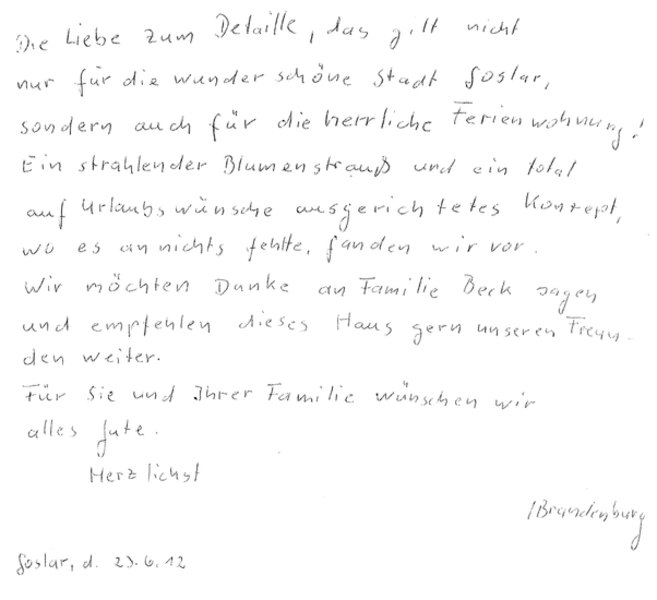 Die Liebe zum Detaille, das gilt nicht
nur für die wunderschöne Stadt Goslar,
sondern auch für die herrliche Ferienwohnung!
Ein strahlender Blumenstrauß und ein total
auf Urlaubswünsche ausgerichtetes Konzept,
wo es an nichts fehlte, fanden wir vor.
Wir möchten Danke an Familie Beck sagen
und empfehlen dieses Haus gern unseren Freun-
den weiter.
Für Sie und Ihrer Familie wünschen wir
alles Gute.
Herzlichst
/Brandenburg
Goslar, d. 23.6.12